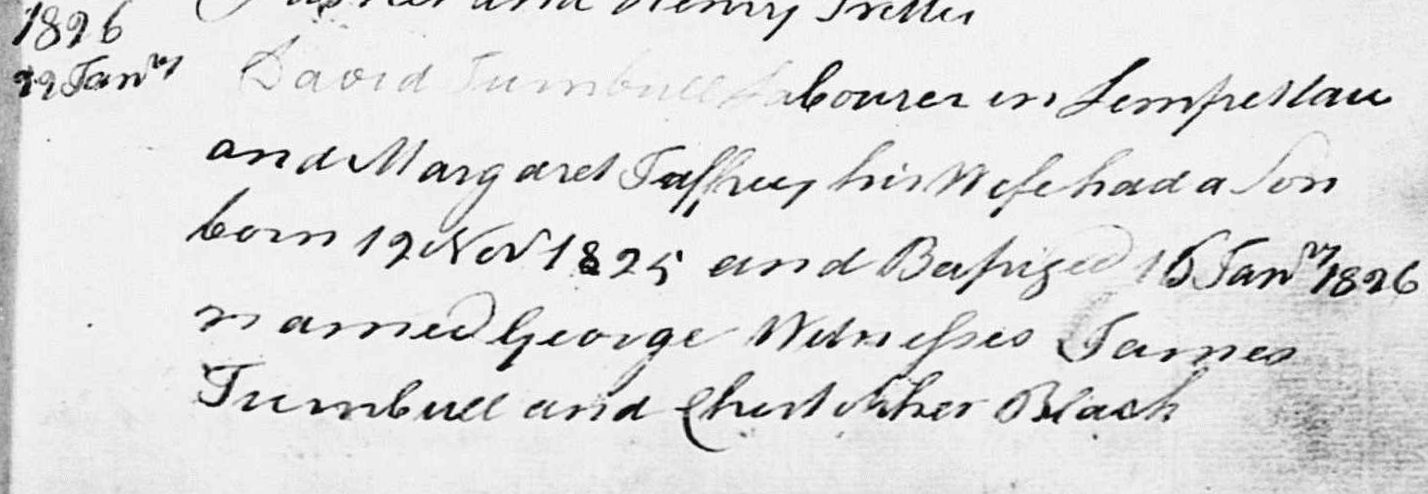 and Henry
1826
22 Janry David Turnbull Labourer in Lempetlaw
and Margaret Jaffrey his Wife had a Son
born 12 Nov 1825 and Bapized 15 Janry 1826
named George Witnesses James
Turnbull and Christopher Black